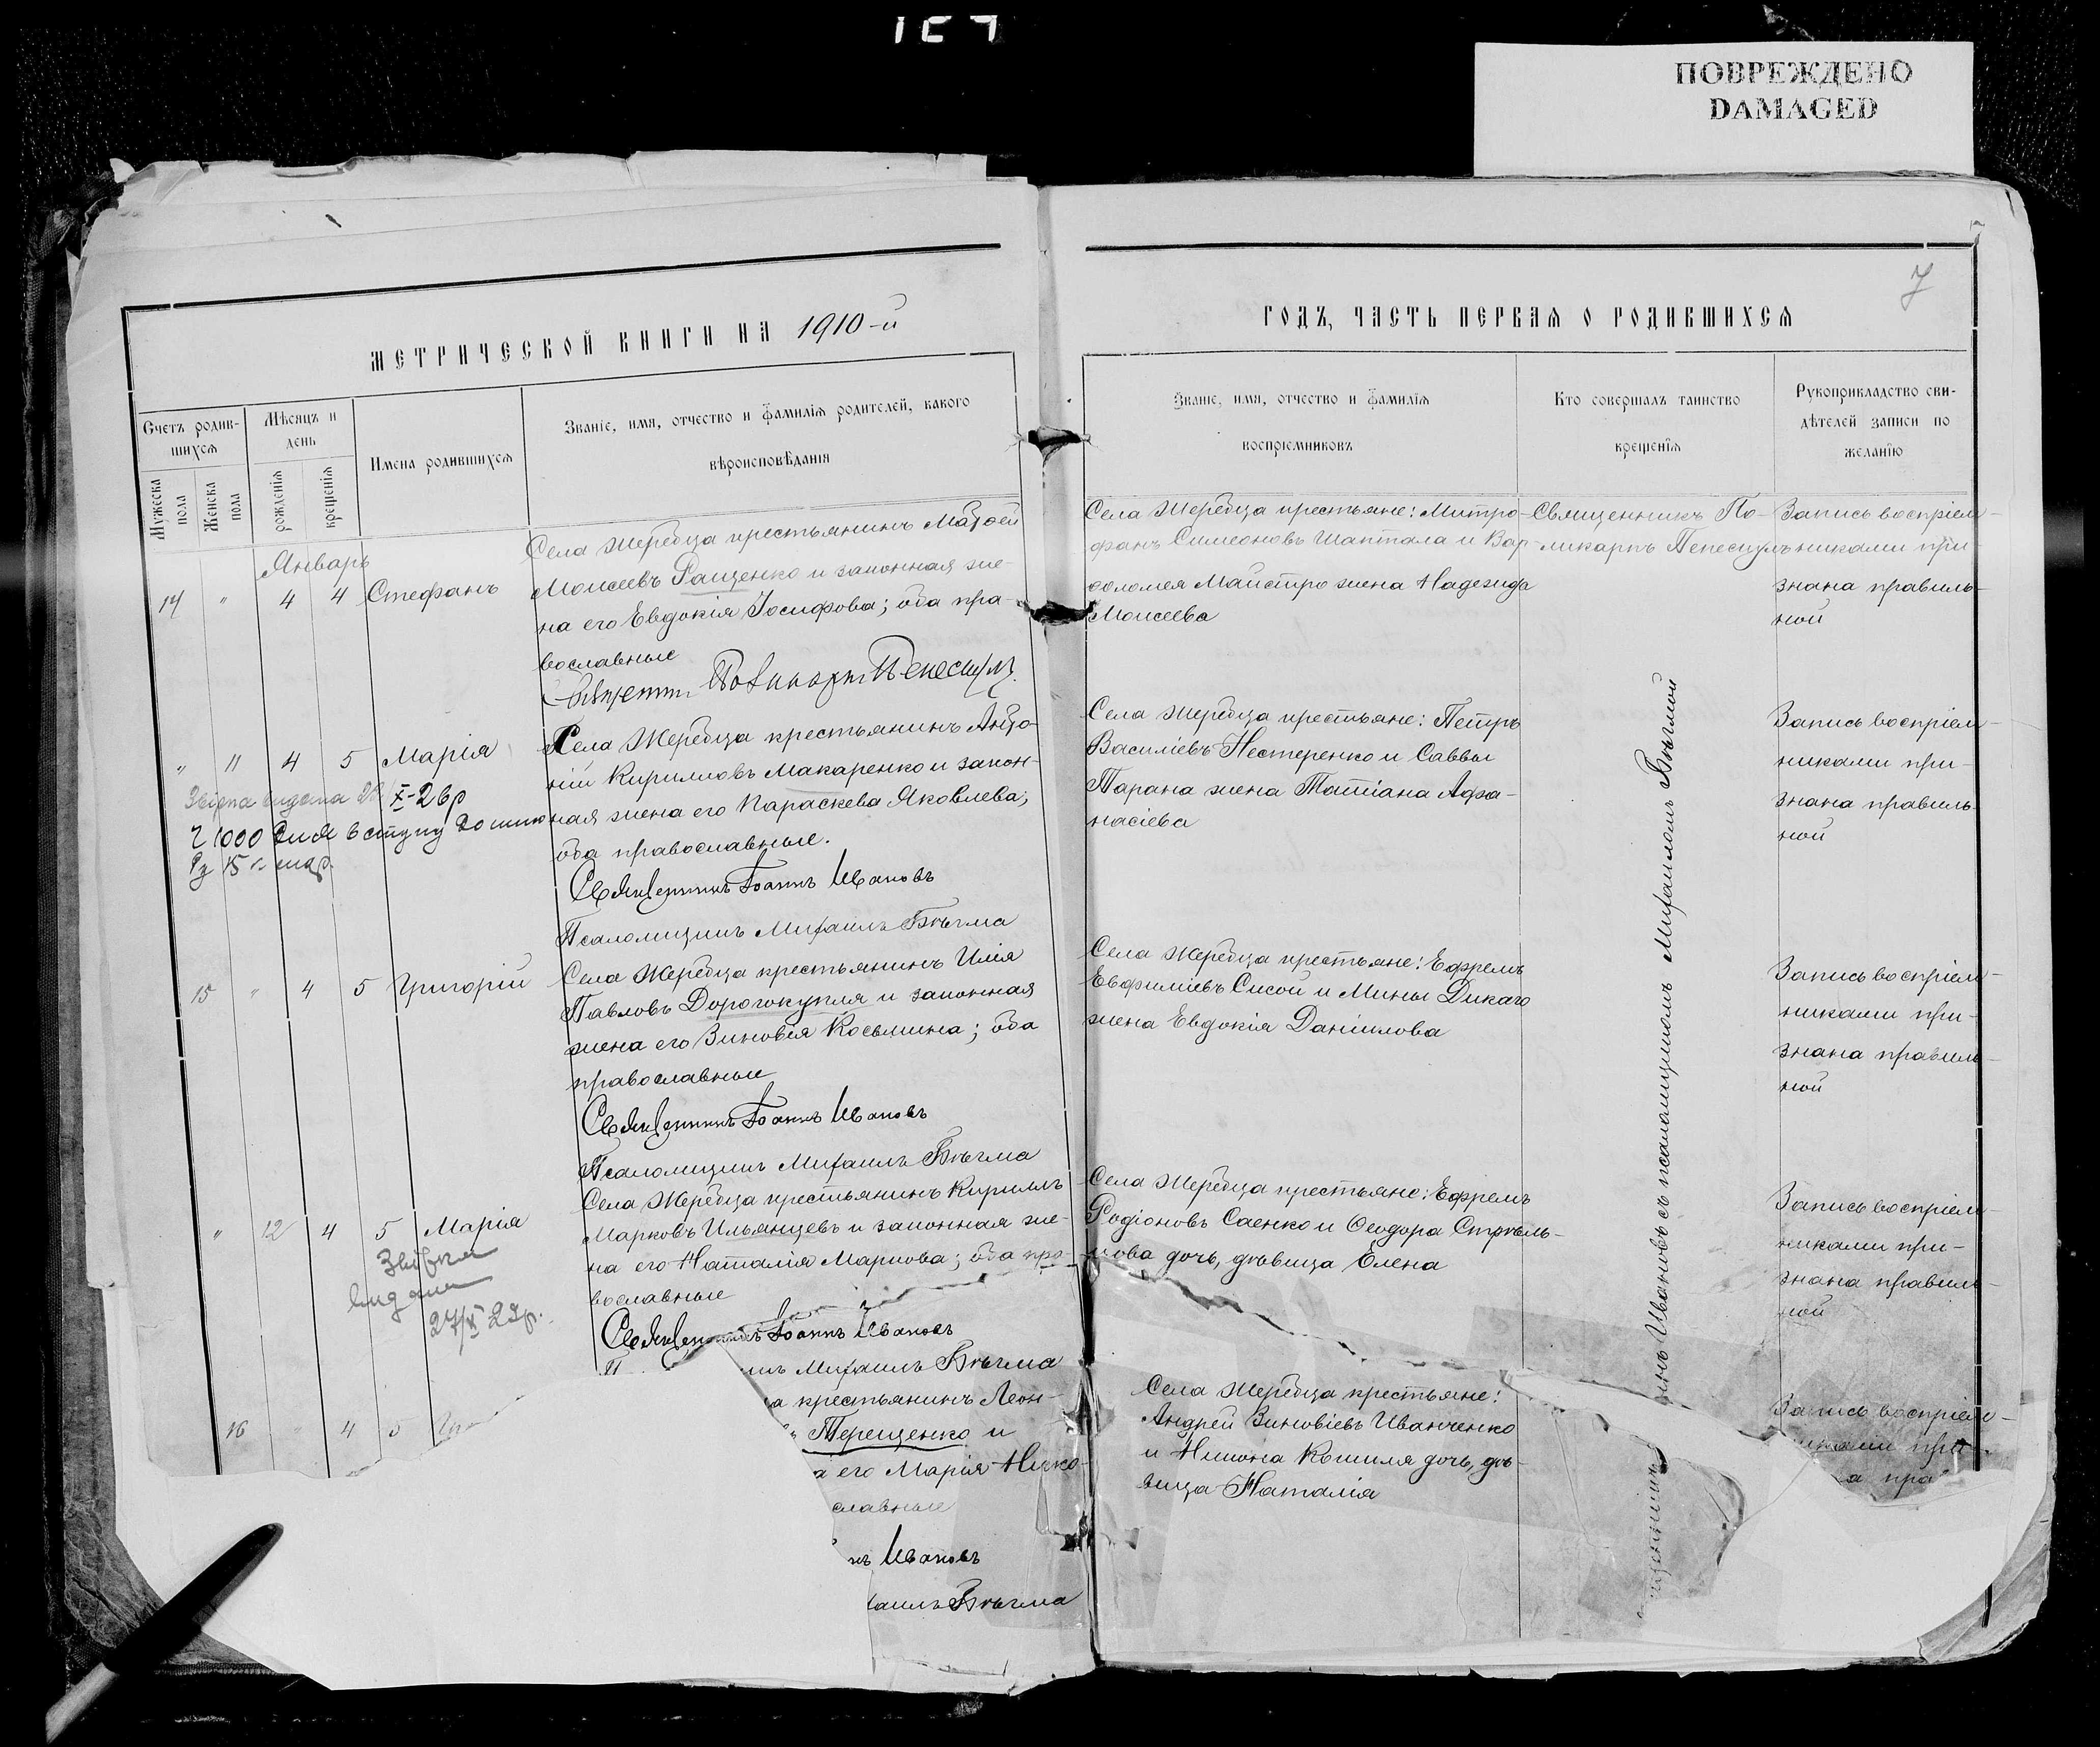 ПОВРЕЖДЕНО
DAMAGED
7
МЕТРИЧЕСКОЙ КНИГИ НА 1910-й
ГОДЪ, ЧАСТЬ ПЕРВАЯ О РОДИВШИХСЯ
Счетъ родив-
шихся
Мужеска
пола
Женска
пола
Мѣсяцъ и
день
рожденія
крещенія
Имена родившихся
Званіе, имя, отчество и фамилія родителей, какого
вѣроисповѣданія
Званіе, имя, отчество и фамилія
воспріемниковъ
Кто совершалъ таинство
крещенія
Рукоприкладство сви-
дѣтелей записи по
желанію
Январь
14 " 4 4 Стефанъ
Села Жеребца крестьянинъ Матѳей
Моисеевъ Ращенко и законная же-
на его Евдокія Іосифова; оба пра-
вославные
Поликарпъ Пепескулъ
Села Жеребца крестьяне: Митро-
фанъ Симеоновъ Шаптала и Вар-
ѳоломея Майстро жена Надежда
Моисеева
Священникъ По-
ликарпъ Пепескулъ
Запись воспріем-
никами при-
знана правиль-
ной
" 11 4 5 Марія
X-2
1000 Для вступу до
15
Села Жеребца крестьянинъ Анто-
ній Кирилловъ Макаренко и закон-
ная жена его Параскева Яковлева;
оба православные.
Священникъ Іоаннъ Ивановъ
Псаломщикъ Михаилъ Бѣгма
Села Жеребца крестьяне: Петръ
Василіевъ Нестеренко и Саввы
Парана жена Татіана Афа-
насіева
Запись воспріем-
никами при-
знана правиль-
ной
15 " 4 5 Григорій
Села Жеребца крестьянинъ Илія
Павловъ Дорогокупля и законная
жена его Зиновія Косьмина; оба
православные
Священникъ Іоаннъ Ивановъ
Псаломщикъ Михаилъ Бѣгма
Села Жеребца крестьяне: Ефремъ
Евфиміевъ Сисой и Мины Дикаго
жена Евдокія Даніилова
Запись воспріем-
никами при-
знана правиль-
ной
" 12 4 5 Марія
27/X 29р.
Села Жеребца крестьянинъ Кириллъ
Марковъ Ильянцевъ и законная же-
на его Наталія Маркова; оба пра-
вославные
Священникъ Іоаннъ Ивановъ
П
икъ Михаилъ Бѣгма
Села Жеребца крестьяне: Ефремъ
Родіоновъ Саенко и Ѳеодора Стрѣль-
цова дочь, дѣвица Елена
Запись воспріем-
никами при-
знана правиль-
ной
16 " 4 5
а крестьянинъ Леон-
Терещенко и
а его Марія Нико-
славные
нъ Ивановъ
хаилъ Бѣгма
Села Жеребца крестьяне:
Андрей Зиновіевъ Иванченко
и Никона Кошиля дочь, дѣ-
вица Наталія
Запись воспріем-
никами при-
а пра
щенникъ
Ивановъ съ псаломщикомъ Михаиломъ Бѣгмой